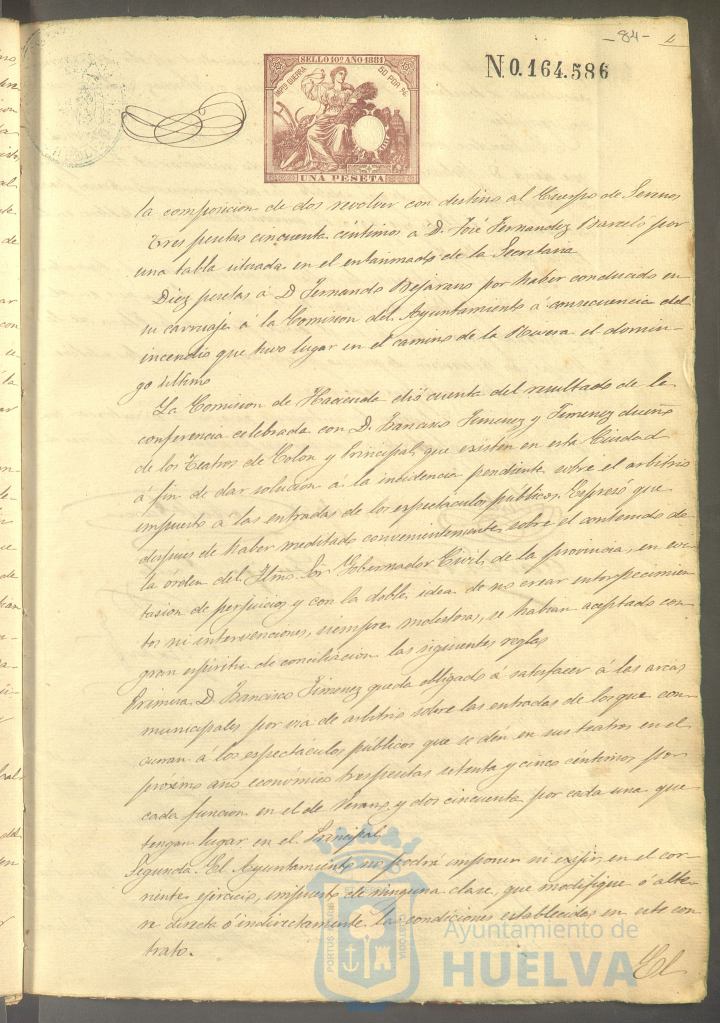 -84-
SELLO 10º AÑO 1881
IMPTO GUERRA 50 POR %
UNA PESETA
N0.164.586
la composicion de dos revolver con destino al Cuerpo de Serenos
Tres pesetas cincuenta céntimos á D. José Fernandez Barceló por
una tabla situada en el entarimado de la Secretaria
Diez pesetas á D Fernando Bejarano por haber conducido en
su carruaje á la Comision del Ayuntamiento á consecuencia del
incendio que tuvo lugar en el camino de la Rivera el domin-
go último
La Comision de Hacienda dió cuenta del resultado de la
conferencia celebrada con D. Francisco Jimenez y Jimenez dueño
de los Teatros de Colon y Principal, que existen en esta Ciudad
á fin de dar solucion a la incidencia pendiente sobre el arbitrio
impuesto á las entradas de los espectáculos públicos. Expresó que
despues de haber meditado convenientemente sobre el contenido de
la órden del Iltmo. Sr. Gobernador Civil, de la provincia, en evi-
tasion de perjuicios y con la doble idea de no crear entorpecimien
tos ni intervenciones, siempre molestosas, se habian aceptado con
gran espíritu de conciliacion las siguientes reglas
Primera. D. Francisco Jimenez queda obligado á satisfacer á las arcas
municipales por via de arbitrio sobre las entradas de los que con-
curran á los espectáculos públicos que se dén en sus teatros en el
próximo año económico tres pesetas setenta y cinco céntimos por
cada funcion en el de Verano, y dos cincuenta por cada una que
tengan lugar en el Principal
Segunda. El Ayuntamiento no podrá imponer ni exijir, en el cor-
riente ejercicio, impuesto de ninguna clase, que modifique ó alte-
re directa ó indirectamente las condiciones establecidas en este con
trato.
El
Ayuntamiento de
HUELVA